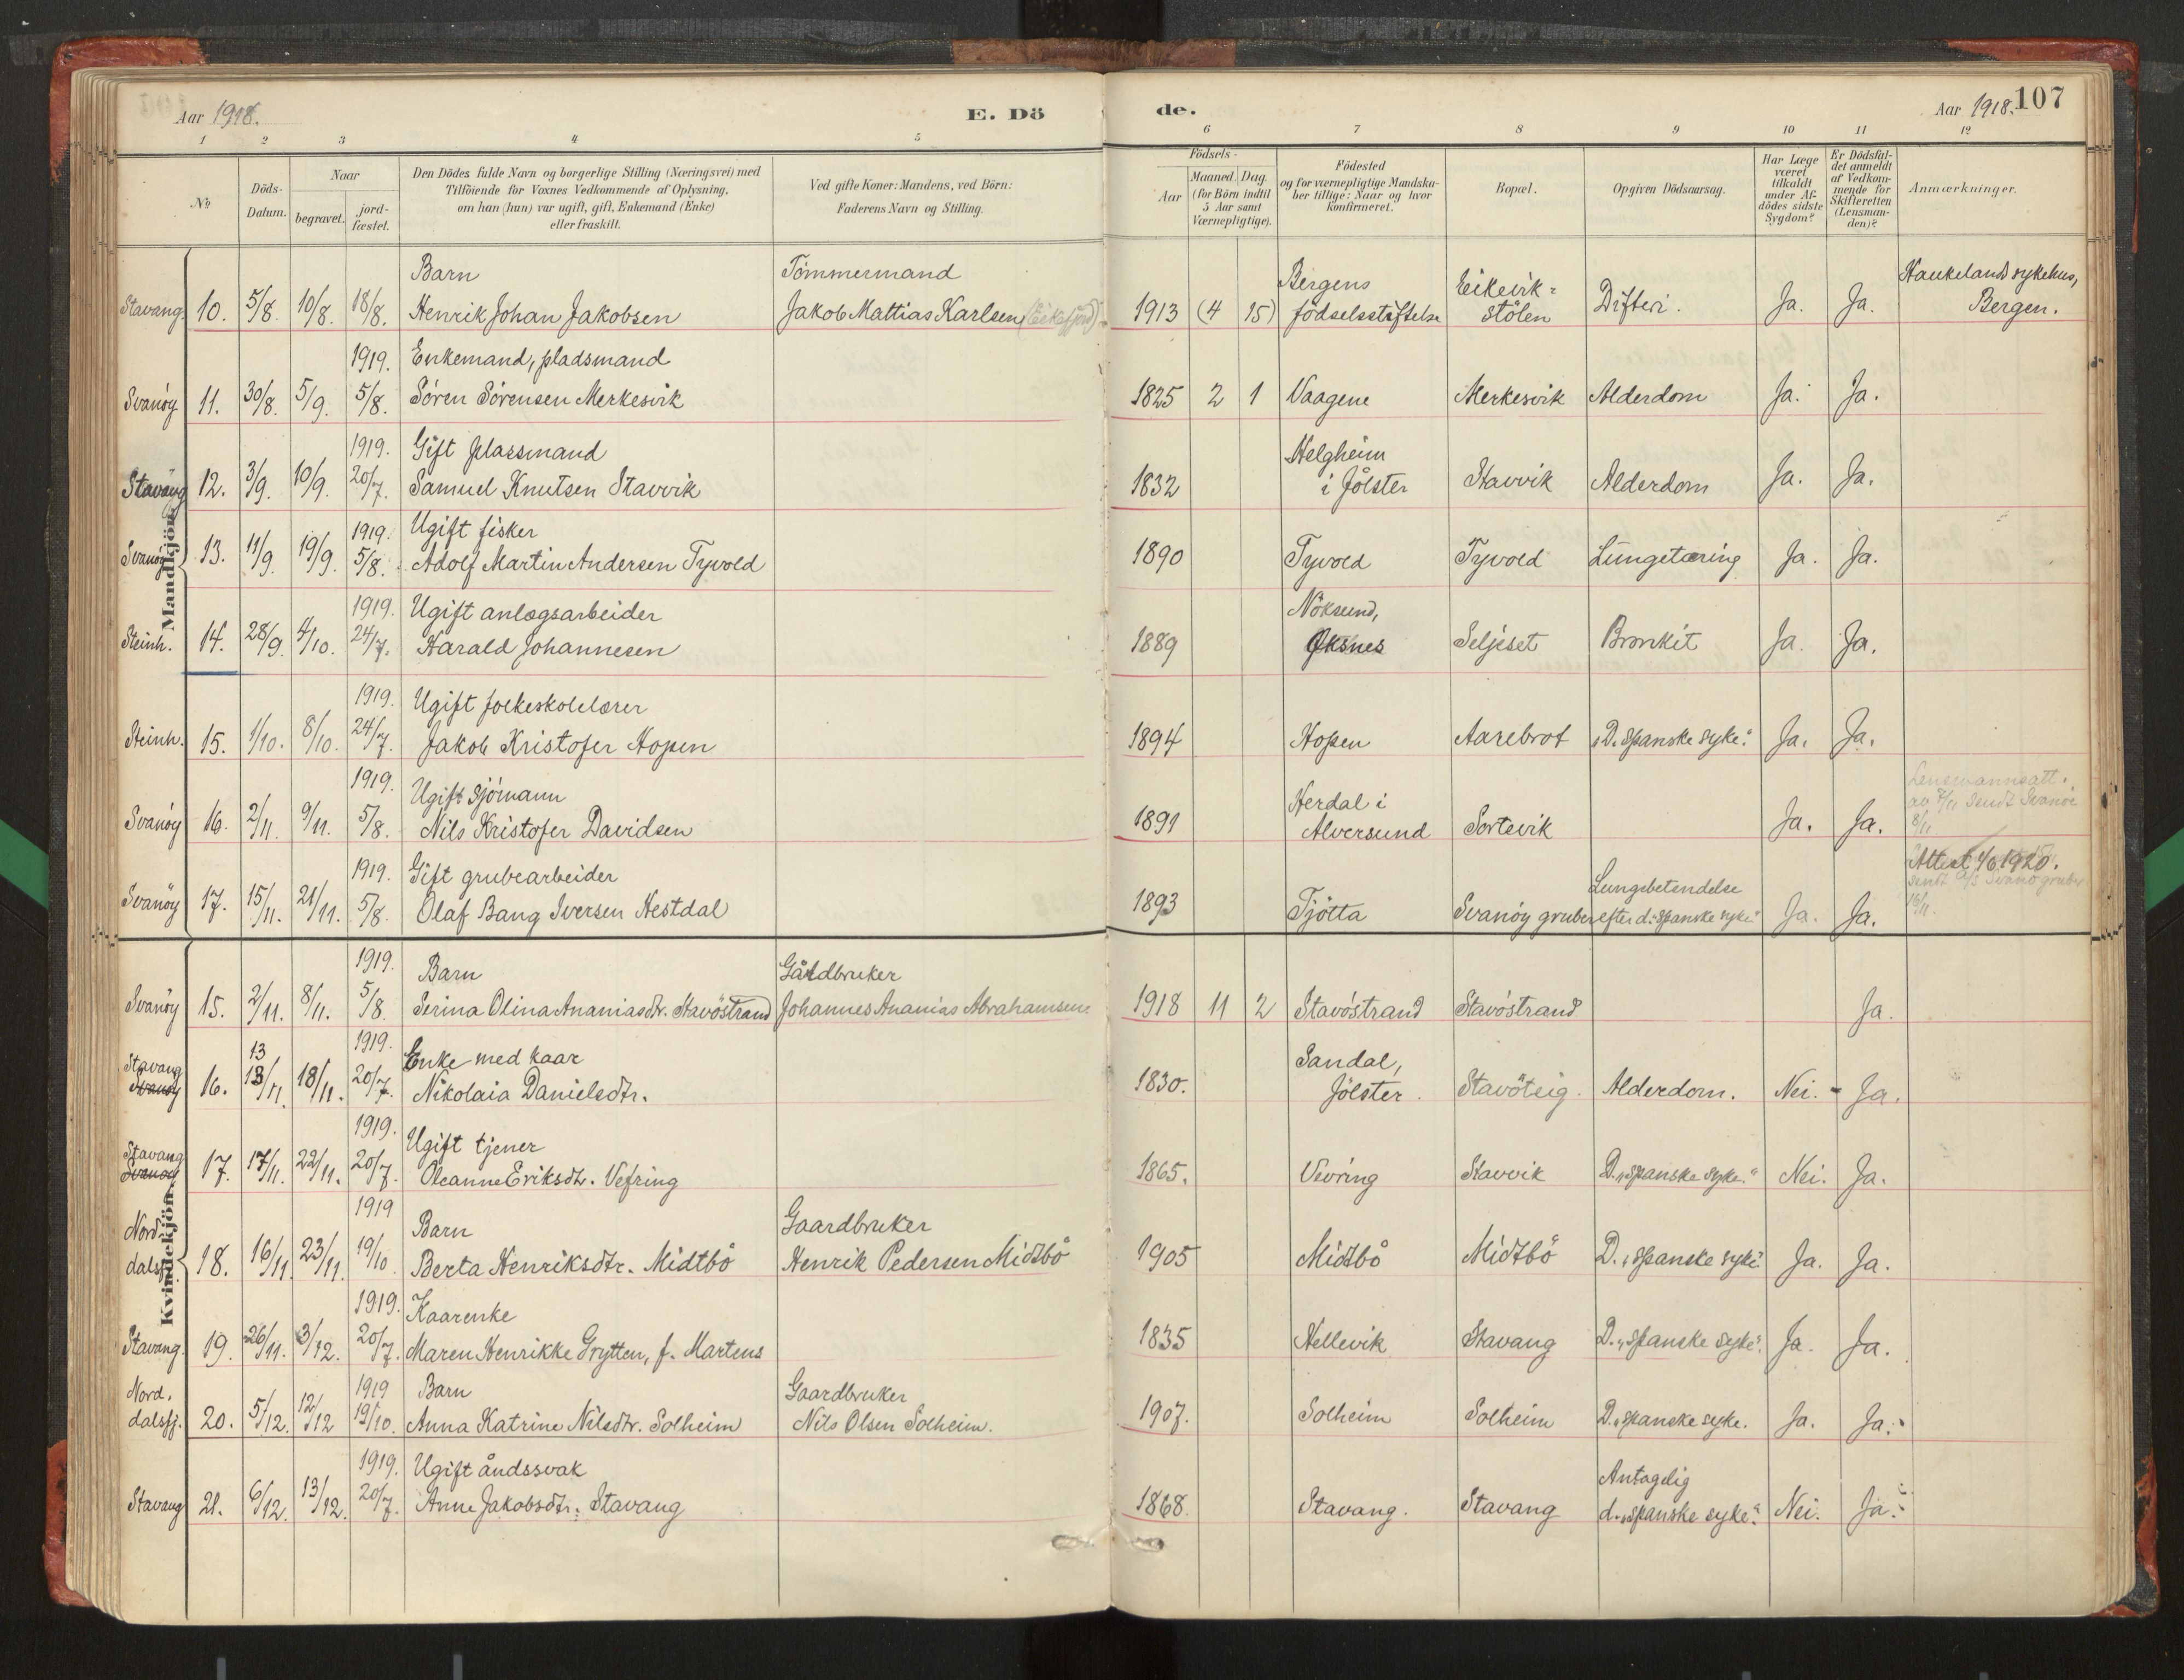 Aar 1918.
E. Dö
de.
Aar 1918.
107
1 2 3 4 5 6 7 8 9 10 11 12
№
Döds-
Datum.
Naar
begravet.
jord-
fæstet.
Den Dödes fulde Navn og borgerlige Stilling (Næringsvei) med
Tilföiende for Voxnes Vedkommende af Oplysning,
om han (hun) var ugift, gift, Enkemand (Enke)
eller fraskilt.
Ved gifte Koner: Mandens, ved Börn:
Faderens Navn og Stilling.
Födsels-
Aar
Maaned. Dag.
(for Börn indtil
5 Aar samt
Værnepligtige).
Födested
og for værnepligtige Mandska-
ber tillige: Naar og hvor
konfirmeret.
Bopæl.
Opgiven Dödsaarsag.
Har Læge
været
tilkaldt
under Af-
dödes sidste
Sygdom?
Er Dödsfal-
det anmeldt
af Vedkom-
mende for
Skifteretten
(Lensman-
den)?
Anmærkninger.
Mandkjön.
Barn Tömmermand Bergens Eikevik= Haukeland sykehus,
Stavang. 10. 5/8. 10/8. 18/8. Henrik Johan Jakobsen Jakob Mattias Karlsen (Eikefjord) 1913 (4 15) födselsstiftelse stölen Difteri. Ja. Ja. Bergen.
1919. Enkemand, pladsmand
Svanöy 11. 30/8. 5/9. 5/8. Sören Sörensen Merkesvik 1825 2 1 Vaagene Merkesvik Alderdom Ja. Ja.
1919. Gift plassmand Helgheim
Stavang 12. 3/9. 10/9. 20/7. Samuel Knutsen Stavvik 1832 i Jölster Stavvik Alderdom Ja. Ja.
1919. Ugift fisker
Svanöy 13. 11/9. 19/9. 5/8. Adolf Martin Andersen Tyvold 1890 Tyvold Tyvold Lungetæring Ja. Ja.
1919. Ugift anlægsarbeider Nöksund,
Steinh. 14. 28/9. 4/10. 24/7. Harald Johannesen 1889 Öksnes Seljeset Bronkit Ja. Ja.
1919. Ugift folkeskolelærer
Steinh. 15. 1/10. 8/10. 24/7. Jakob Kristofer Hopen 1894 Hopen Aarebrot "D. spanske syke." Ja. Ja.
1919. Ugift sjömann Herdal i Lensmannsatt.
av 7/11 sendt Svanöe
Svanöy 16. 2/11. 9/11. 5/8. Nils Kristofer Davidsen 1891 Alversund Sortevik Ja. Ja. 8/11
1919. Gift grubearbeider Lungebetendelse Attest 4/6 1920.
sendt a/s Svanö gruber
Svanöy 17. 15/11. 21/11. 5/8. Olaf Bang Iversen Hestdal 1893 Tjötta Svanöy gruber efter d. "spanske syke" Ja. Ja. 16/11.
Kvindekjön.
1919. Barn Gårdbruker
Svanöy 15. 2/11. 8/11. 5/8. Serina Olina Ananiasdtr. Stavöstrand Johannes Ananias Abrahamsen. 1918 11 2 Stavöstrand Stavöstrand Ja.
Stavang 13 1919. Enke med kaar Sandal,
Svanöy 16. 13/11. 18/11. 20/7. Nikolaia Danielsdtr. 1830. Jölster. Stavöteig. Alderdom. Nei. - Ja.
Stavang 1919. Ugift tjener
Svanöy 17. 17/11. 22/11. 20/7. Oleanne Eriksdtr. Vefring 1865. Vevring Stavvik D. "spanske syke." Nei. Ja.
Nord- 1919 Barn Gaardbruker
dalsfj. 18. 16/11. 23/11. 19/10. Berta Henriksdtr. Midtbö Henrik Pedersen Midtbö 1905 Midtbö Midtbö D. "spanske syke" Ja. Ja.
1919. Kaarenke
Stavang. 19. 26/11. 3/12. 20/7. Maren Henrikke Grytten, f. Martens 1835 Hellevik Stavang D. "spanske syke". Ja. Ja.
Nord. 1919 Barn Gaardbruker
dalsfj. 20. 5/12. 12/12 19/10. Anna Katrine Nilsdtr. Solheim Nils Olsen Solheim. 1907. Solheim Solheim D. "spanske syke. Ja. Ja.
1919. Ugift åndssvak Antagelig
Stavang 21. 6/12. 13/12. 20/7. Anne Jakobsdtr. Stavang 1868. Stavang. Stavang d. "spanske syke." Nei. Ja.